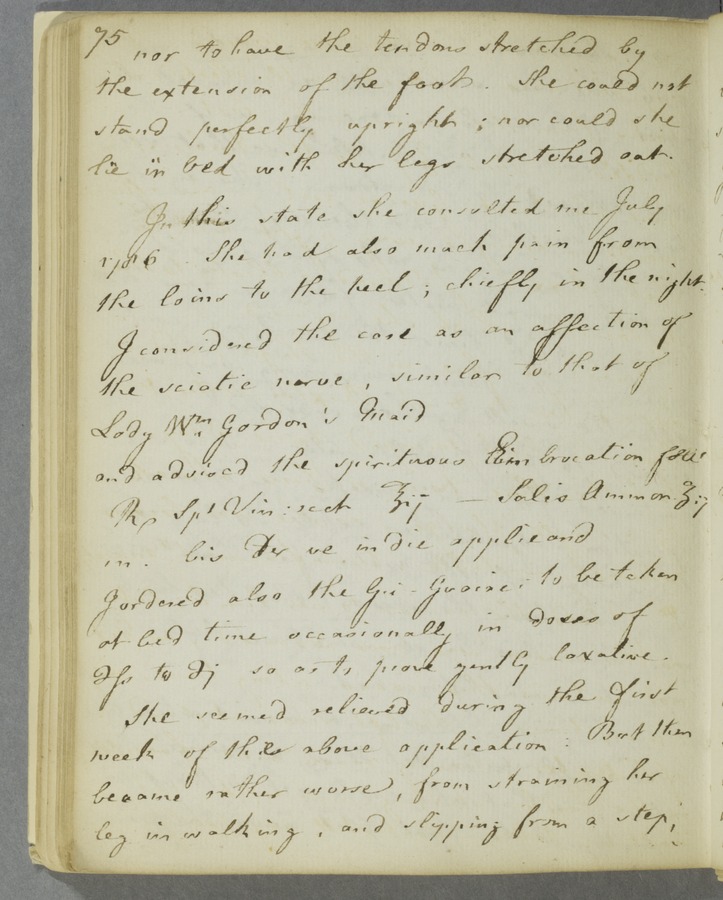 75
nor to have the tendons stretched by
the extension of the foot. She could not
stand perfectly upright; nor could she
lie in bed with her legs stretched out.
In this state she consulted me July
She had also much pain from
the loins to the heel; chiefly in the night.
I considered the case as an affection of
the sciatic nerve, similar to that of
Lady Wm Gordon's Maid
and advised the spirituous Embrocation foll:
Rx Spt Vin: rect ℥ij — Salis Ammon. ʒij
m. bis ter ve in die applicand
I ordered also the Gi - Guaiac: to be taken
at bed time occasionally in doses of
℈ss to ℈j so as to prove gently laxative.
She seemed relieved during the first
week of the above application: But then
became rather worse, from straining her
leg in walking, and slipping from a step;